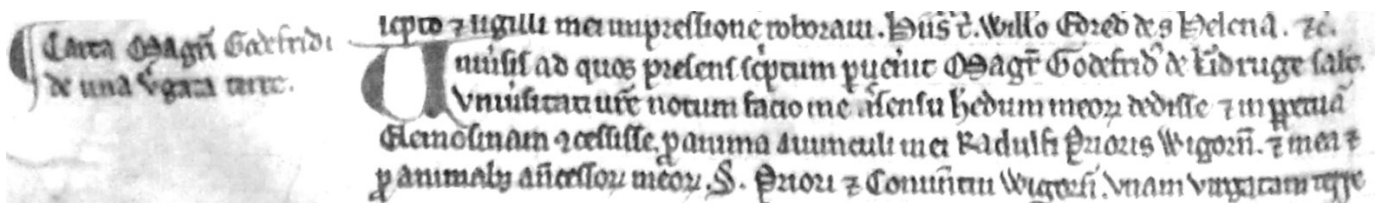 ¶ Carta Magr̄i Godefridi
de una v̓gata terre.
scpto ⁊ sigilli mei impressione roboravi. Hiis t̄. Will̄o Edred de s̄ Helena. ⁊c̄.
Univ̓sis ad quos presens sc̓ptum p̱ven̓it Magr̄ Godefrid̓ de salt̄.
Univ̓sitati vr̄e notum facio me assensu h̓edum meoꝝ dedisse ⁊ in ꝑpetuā
Elemosinam ꝯcessisse, ꝓ anima avunculi mei Radulfi Prioris Wigorn̄. ⁊ mea ⁊
ꝓ animabꝫ an̄cessoꝝ meoꝝ. S. Priori ⁊ Conventui Wigorn̄. Unam virgatam terre